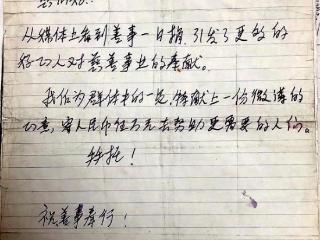 从媒体上看到善事一日捐,引发了更多的
好心人对慈善事业的奉献。
我作为群体中的一员,特献上一份微薄的
心意,寄人民币伍万元去帮助更需要的人们。
特托!
祝善事奉行!